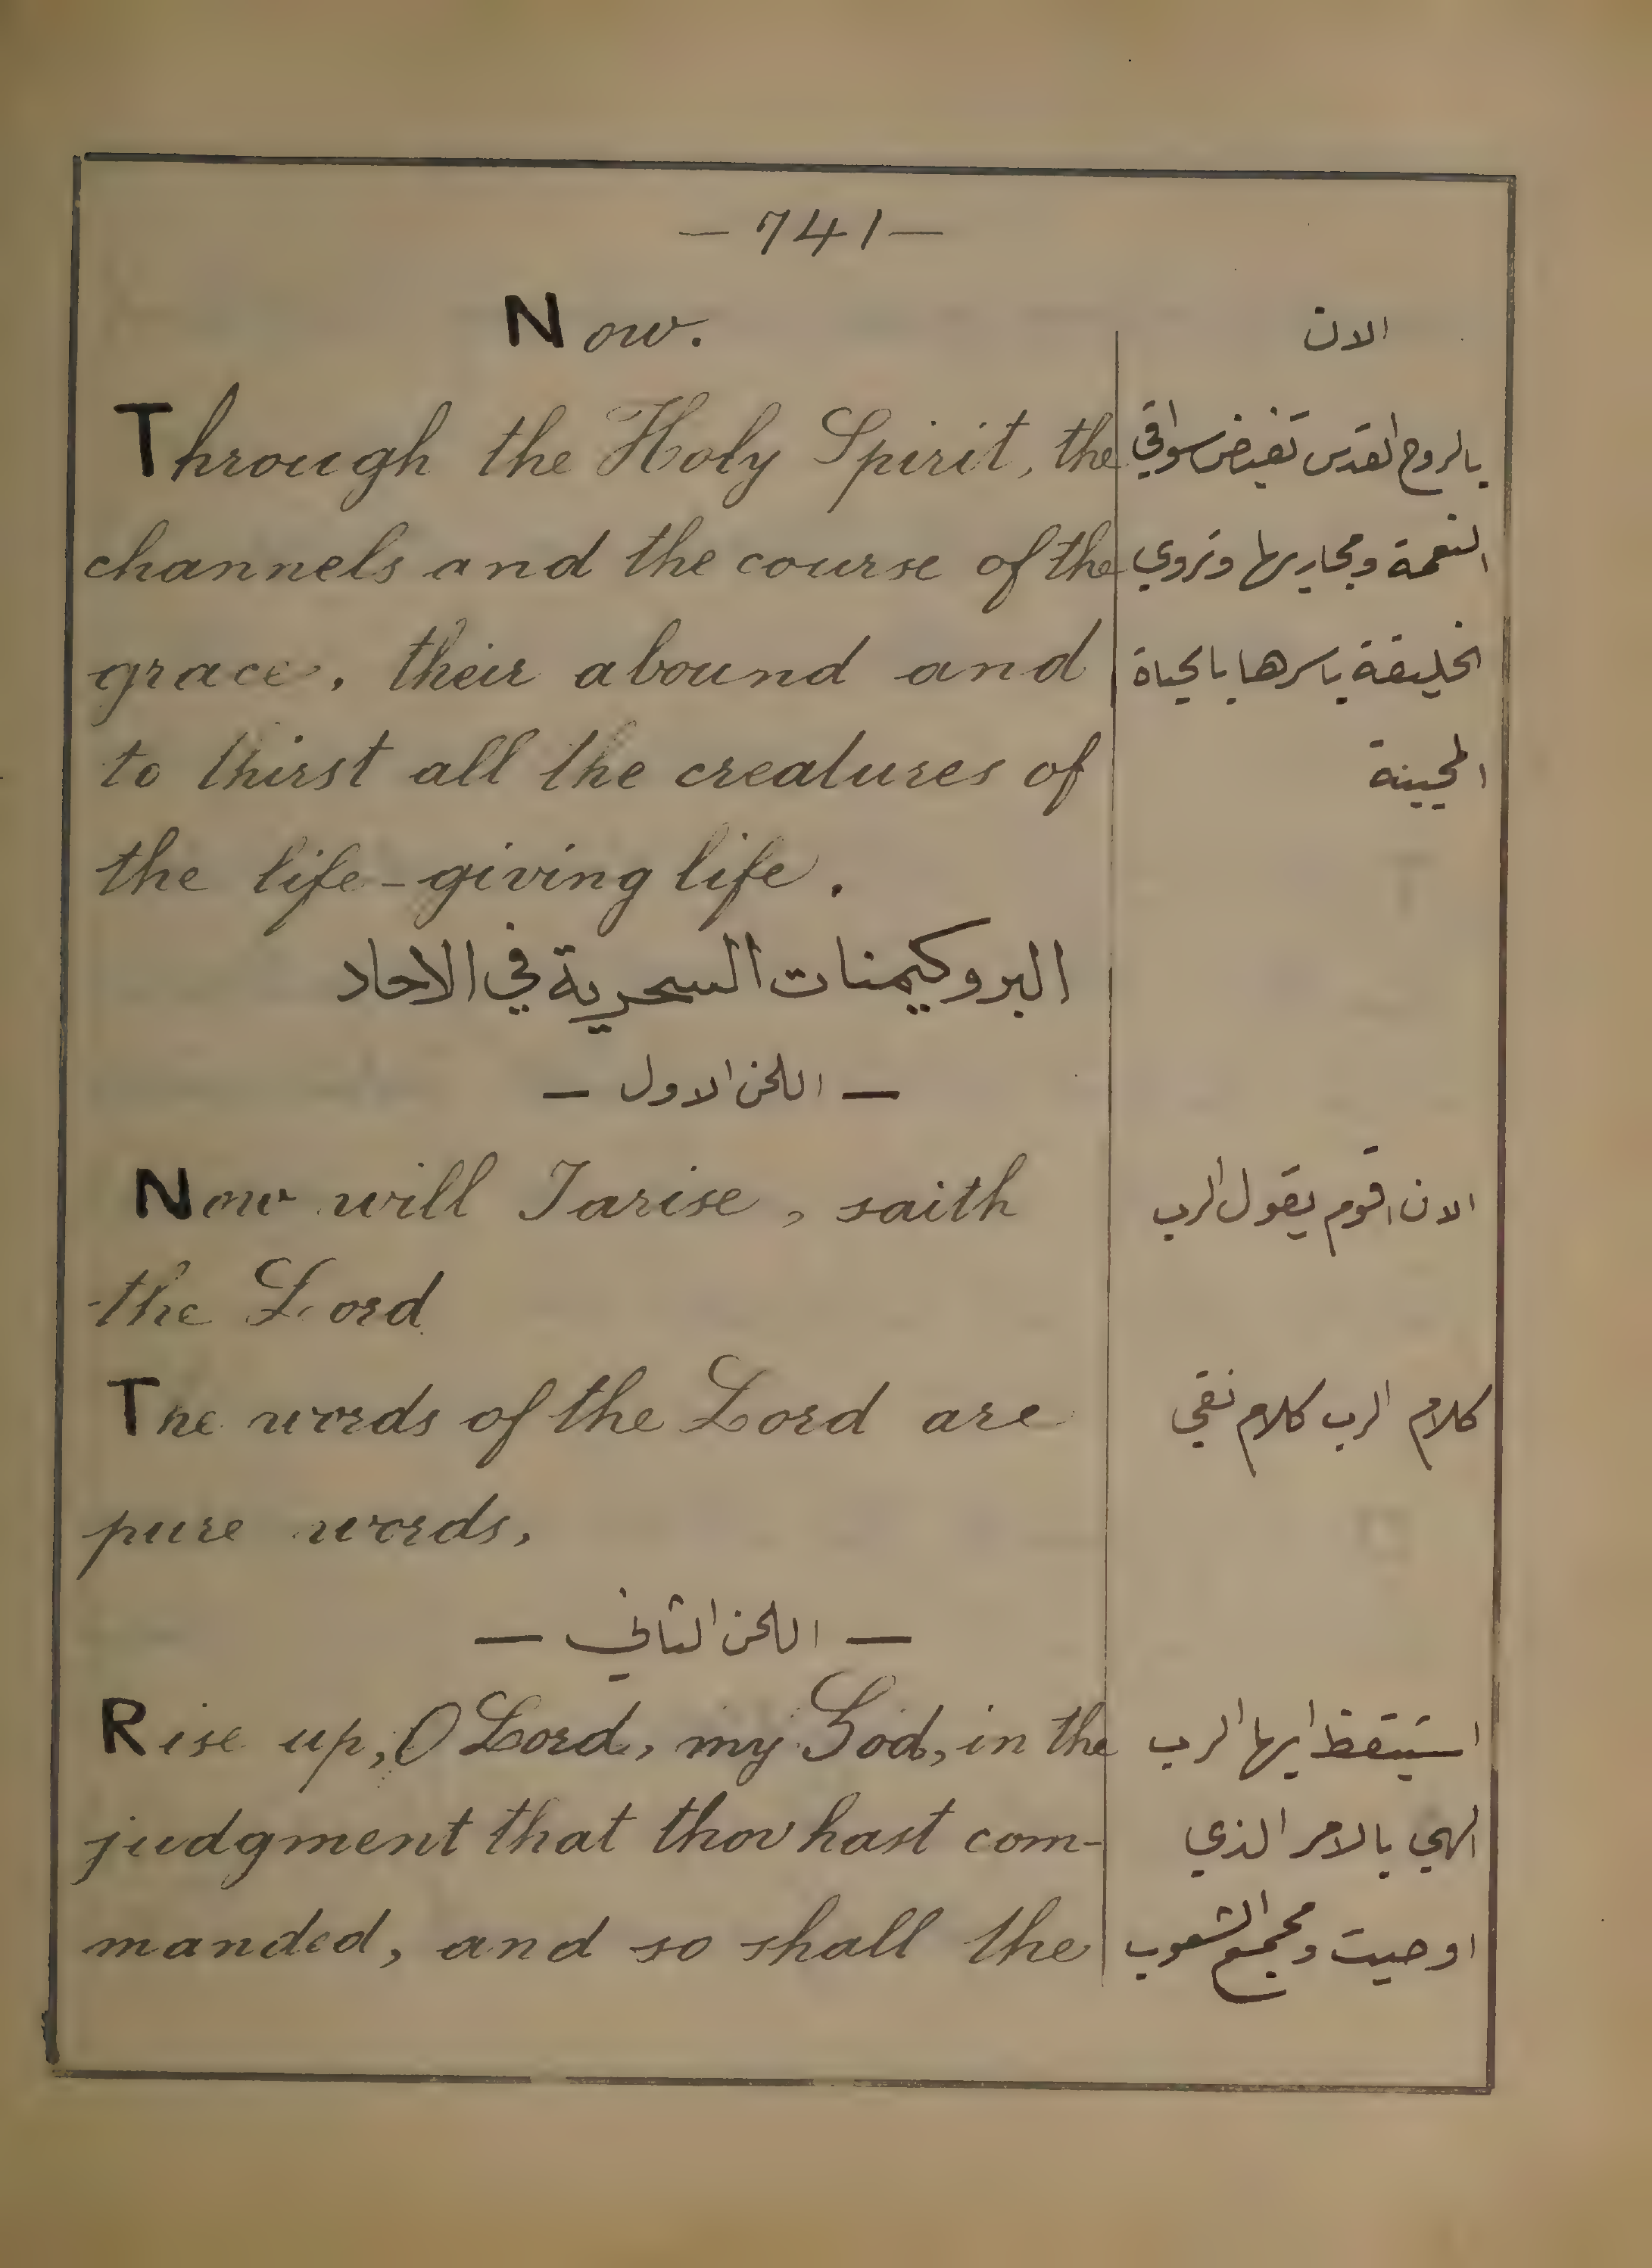 — 741 —
Now.
Through the Holy Spirit, the
channels and the course of the
grace, their abound and
to thirst all the creatures of
the life-giving life.
الان
بالروح القدس تفيض سواقي
النعمة ومجاريها وتروي
الخليقة باسرها بالحياة
المحيية
البروكيمنات السحرية في الاحاد
— اللحن الاول —
Now will I arise, saith
the Lord
The words of the Lord are
pure words,
الان اقوم يقول الرب
كلام الرب كلام نقي
— اللحن الثاني —
Rise up, O Lord, my God, in the
judgment that thou hast com-
manded, and so shall the
استيقظ ايها الرب
الهي بالامر الذي
اوصيت ومجمع الشعوب